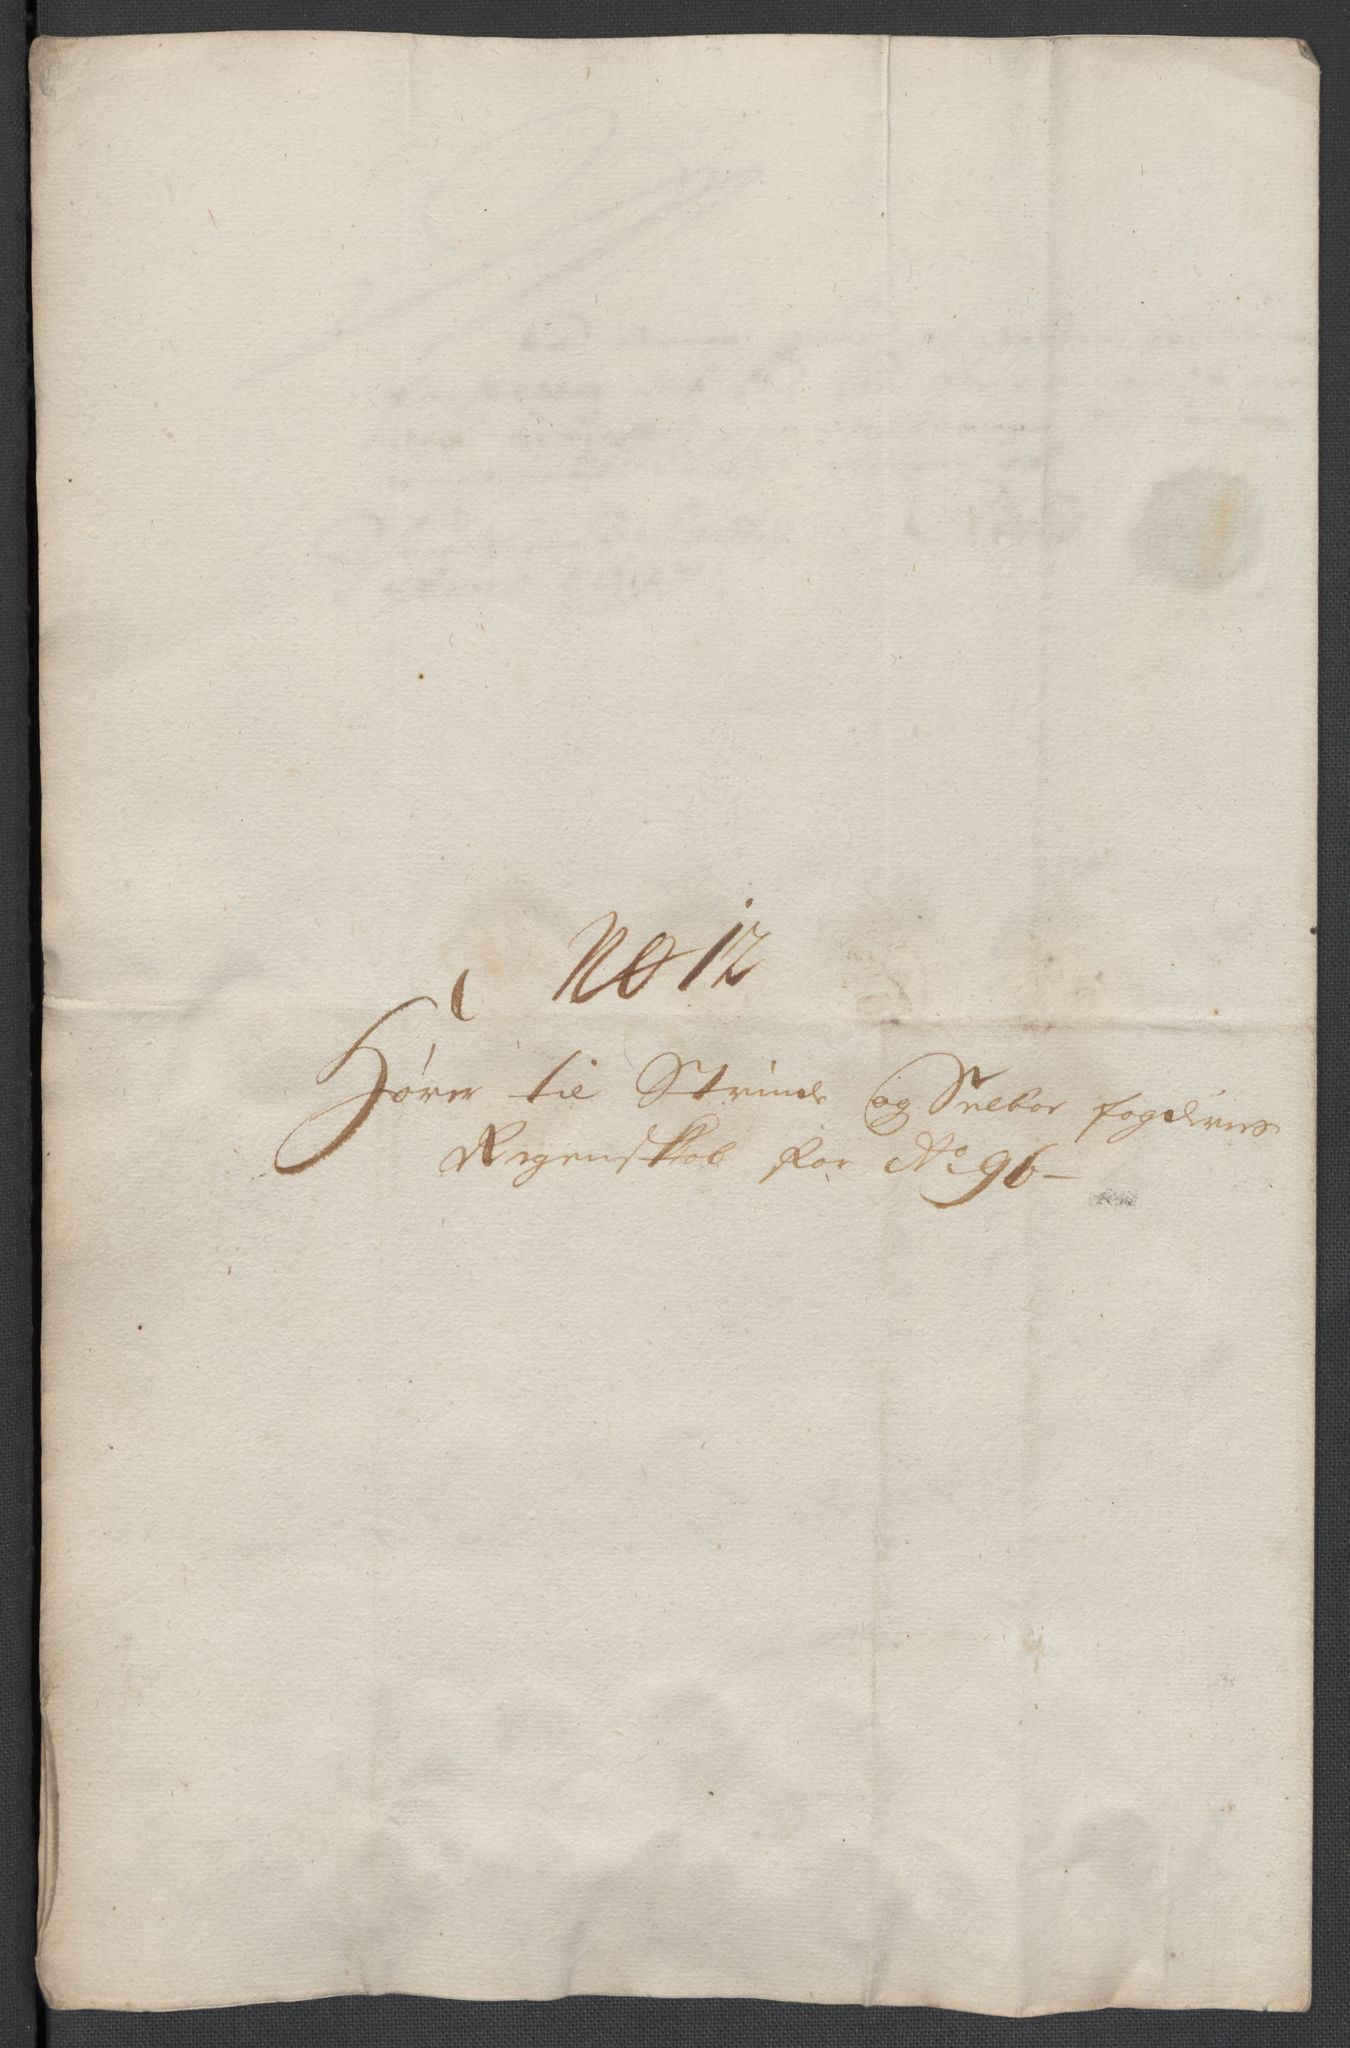 No 12
Hører til Strinde og Selboe fogderies
Regenskab for Ao 96